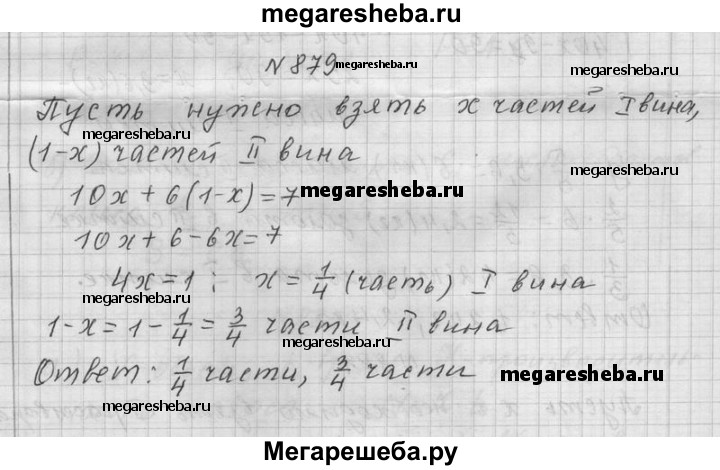 megaresheba.ru
№879 megaresheba.ru
megaresheba.ru
Пусть нужно взять x частей I вина,
megaresheba.ru
(1-x) частей II вина
megaresheba.ru
10x + 6(1-x) = 7 megaresheba.ru
10x + 6 - 6x = 7
4x = 1 ; x = 1/4 (часть) I вина
megaresheba.ru
1-x = 1 - 1/4 = 3/4 части II вина
megaresheba.ru
Ответ: 1/4 части, 3/4 части megaresheba.ru
megaresheba.ru
Мегарешеба.ру